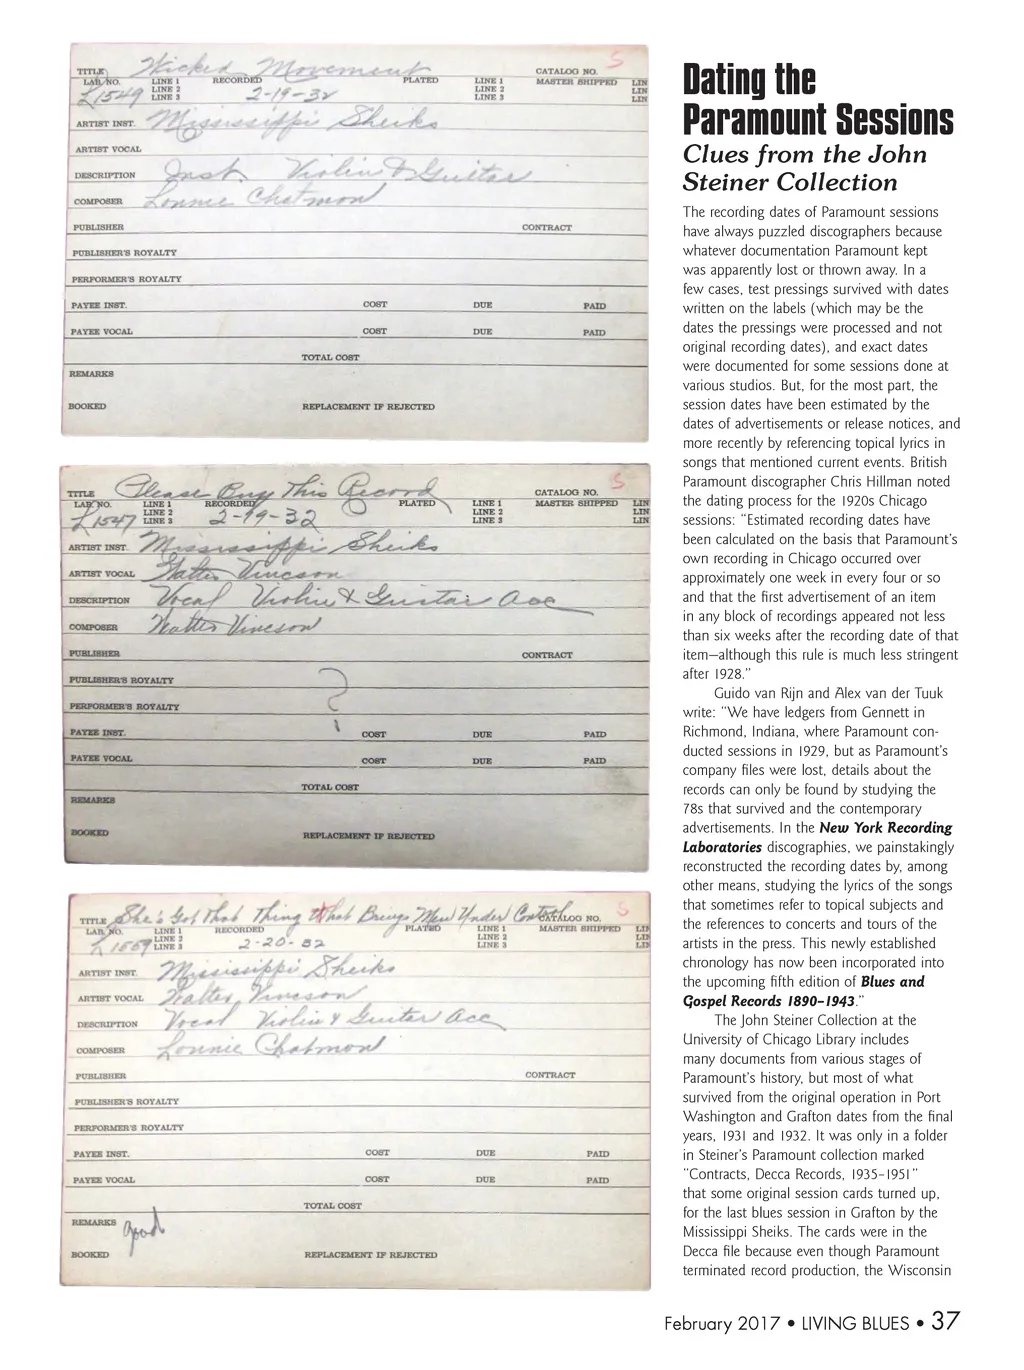 TITLE Wicked Movement CATALOG NO. S
LAB. NO. LINE 1 RECORDED PLATED LINE 1 MASTER SHIPPED LIN
L1549 LINE 2 2-19-32 LINE 2 LIN
LINE 3 LINE 3 LIN
ARTIST INST. Mississippi Sheiks
ARTIST VOCAL
DESCRIPTION Inst. Violin & Guitar
COMPOSER Lonnie Chatmon
PUBLISHER CONTRACT
PUBLISHER'S ROYALTY
PERFORMER'S ROYALTY
PAYEE INST. COST DUE PAID
PAYEE VOCAL COST DUE PAID
TOTAL COST
REMARKS
BOOKED REPLACEMENT IF REJECTED
TITLE Please Buy This Record CATALOG NO. S
LAB. NO. LINE 1 RECORDED PLATED LINE 1 MASTER SHIPPED LIN
L1547 LINE 2 2-19-32 LINE 2 LIN
LINE 3 LINE 3 LIN
ARTIST INST. Mississippi Sheiks
ARTIST VOCAL Walter Vincson
DESCRIPTION Vocal Violin & Guitar Acc
COMPOSER Walter Vincson
PUBLISHER CONTRACT
PUBLISHER'S ROYALTY ?
PERFORMER'S ROYALTY
PAYEE INST. COST DUE PAID
PAYEE VOCAL COST DUE PAID
TOTAL COST
REMARKS
BOOKED REPLACEMENT IF REJECTED
TITLE She's Got That Thing That Brings Men Under Control CATALOG NO. S
LAB. NO. LINE 1 RECORDED PLATED LINE 1 MASTER SHIPPED LIN
L1559 LINE 2 2-20-32 LINE 2 LIN
LINE 3 LINE 3 LIN
ARTIST INST. Mississippi Sheiks
ARTIST VOCAL Walter Vincson
DESCRIPTION Vocal Violin & Guitar Acc
COMPOSER Lonnie Chatmon
PUBLISHER CONTRACT
PUBLISHER'S ROYALTY
PERFORMER'S ROYALTY
PAYEE INST. COST DUE PAID
PAYEE VOCAL COST DUE PAID
TOTAL COST
REMARKS good
BOOKED REPLACEMENT IF REJECTED
Dating the
Paramount Sessions
Clues from the John
Steiner Collection
The recording dates of Paramount sessions
have always puzzled discographers because
whatever documentation Paramount kept
was apparently lost or thrown away. In a
few cases, test pressings survived with dates
written on the labels (which may be the
dates the pressings were processed and not
original recording dates), and exact dates
were documented for some sessions done at
various studios. But, for the most part, the
session dates have been estimated by the
dates of advertisements or release notices, and
more recently by referencing topical lyrics in
songs that mentioned current events. British
Paramount discographer Chris Hillman noted
the dating process for the 1920s Chicago
sessions: "Estimated recording dates have
been calculated on the basis that Paramount's
own recording in Chicago occurred over
approximately one week in every four or so
and that the first advertisement of an item
in any block of recordings appeared not less
than six weeks after the recording date of that
item—although this rule is much less stringent
after 1928."
Guido van Rijn and Alex van der Tuuk
write: "We have ledgers from Gennett in
Richmond, Indiana, where Paramount con-
ducted sessions in 1929, but as Paramount's
company files were lost, details about the
records can only be found by studying the
78s that survived and the contemporary
advertisements. In the New York Recording
Laboratories discographies, we painstakingly
reconstructed the recording dates by, among
other means, studying the lyrics of the songs
that sometimes refer to topical subjects and
the references to concerts and tours of the
artists in the press. This newly established
chronology has now been incorporated into
the upcoming fifth edition of Blues and
Gospel Records 1890–1943."
The John Steiner Collection at the
University of Chicago Library includes
many documents from various stages of
Paramount's history, but most of what
survived from the original operation in Port
Washington and Grafton dates from the final
years, 1931 and 1932. It was only in a folder
in Steiner's Paramount collection marked
"Contracts, Decca Records, 1935–1951"
that some original session cards turned up,
for the last blues session in Grafton by the
Mississippi Sheiks. The cards were in the
Decca file because even though Paramount
terminated record production, the Wisconsin
February 2017 • LIVING BLUES • 37